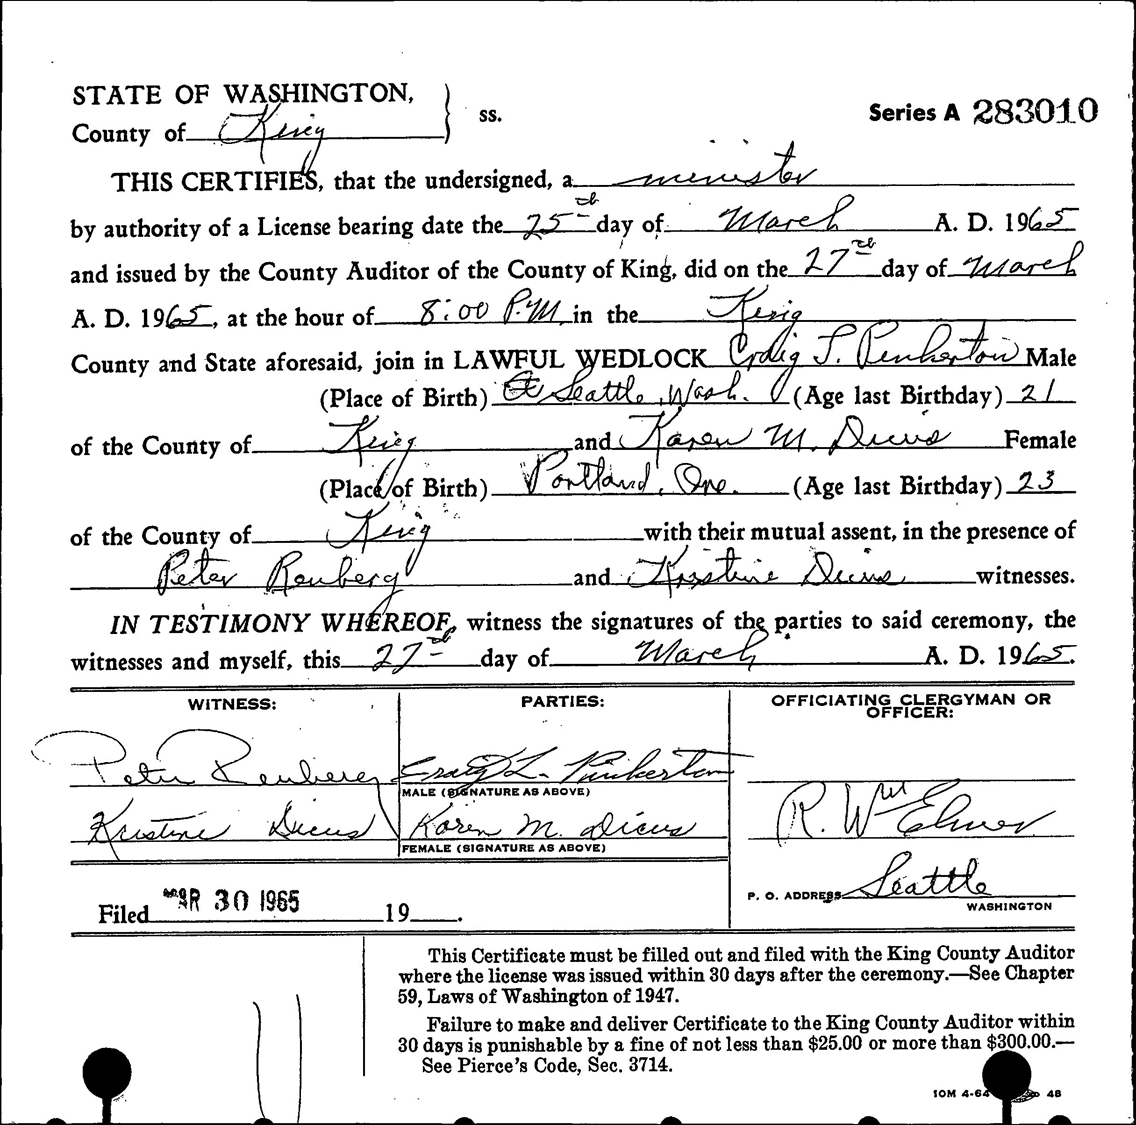 STATE OF WASHINGTON,
County of King
ss.
Series A 283010
THIS CERTIFIES, that the undersigned, a minister
by authority of a License bearing date the 25th day of March A. D. 1965
and issued by the County Auditor of the County of King, did on the 27th day of March
A. D. 1965, at the hour of 8:00 P.M. in the King
County and State aforesaid, join in LAWFUL WEDLOCK Craig L. Pinkerton Male
(Place of Birth) Seattle, Wash. (Age last Birthday) 21
of the County of King and Karen M. Dicus Female
(Place of Birth) Portland, Ore. (Age last Birthday) 23
of the County of King with their mutual assent, in the presence of
Peter Renberg and Kristine Dicus witnesses.
IN TESTIMONY WHEREOF, witness the signatures of the parties to said ceremony, the
witnesses and myself, this 27th day of March A. D. 1965.
WITNESS:
Peter Renberg
Kristine Dicus
PARTIES:
Craig L. Pinkerton
MALE (SIGNATURE AS ABOVE)
Karen M. Dicus
FEMALE (SIGNATURE AS ABOVE)
OFFICIATING CLERGYMAN OR
OFFICER:
R. Wm Elmer
P. O. ADDRESS Seattle
WASHINGTON
Filed MAR 30 1965 19 .
This Certificate must be filled out and filed with the King County Auditor
where the license was issued within 30 days after the ceremony.—See Chapter
59, Laws of Washington of 1947.
Failure to make and deliver Certificate to the King County Auditor within
30 days is punishable by a fine of not less than $25.00 or more than $300.00.—
See Pierce's Code, Sec. 3714.
10M 4-64 48